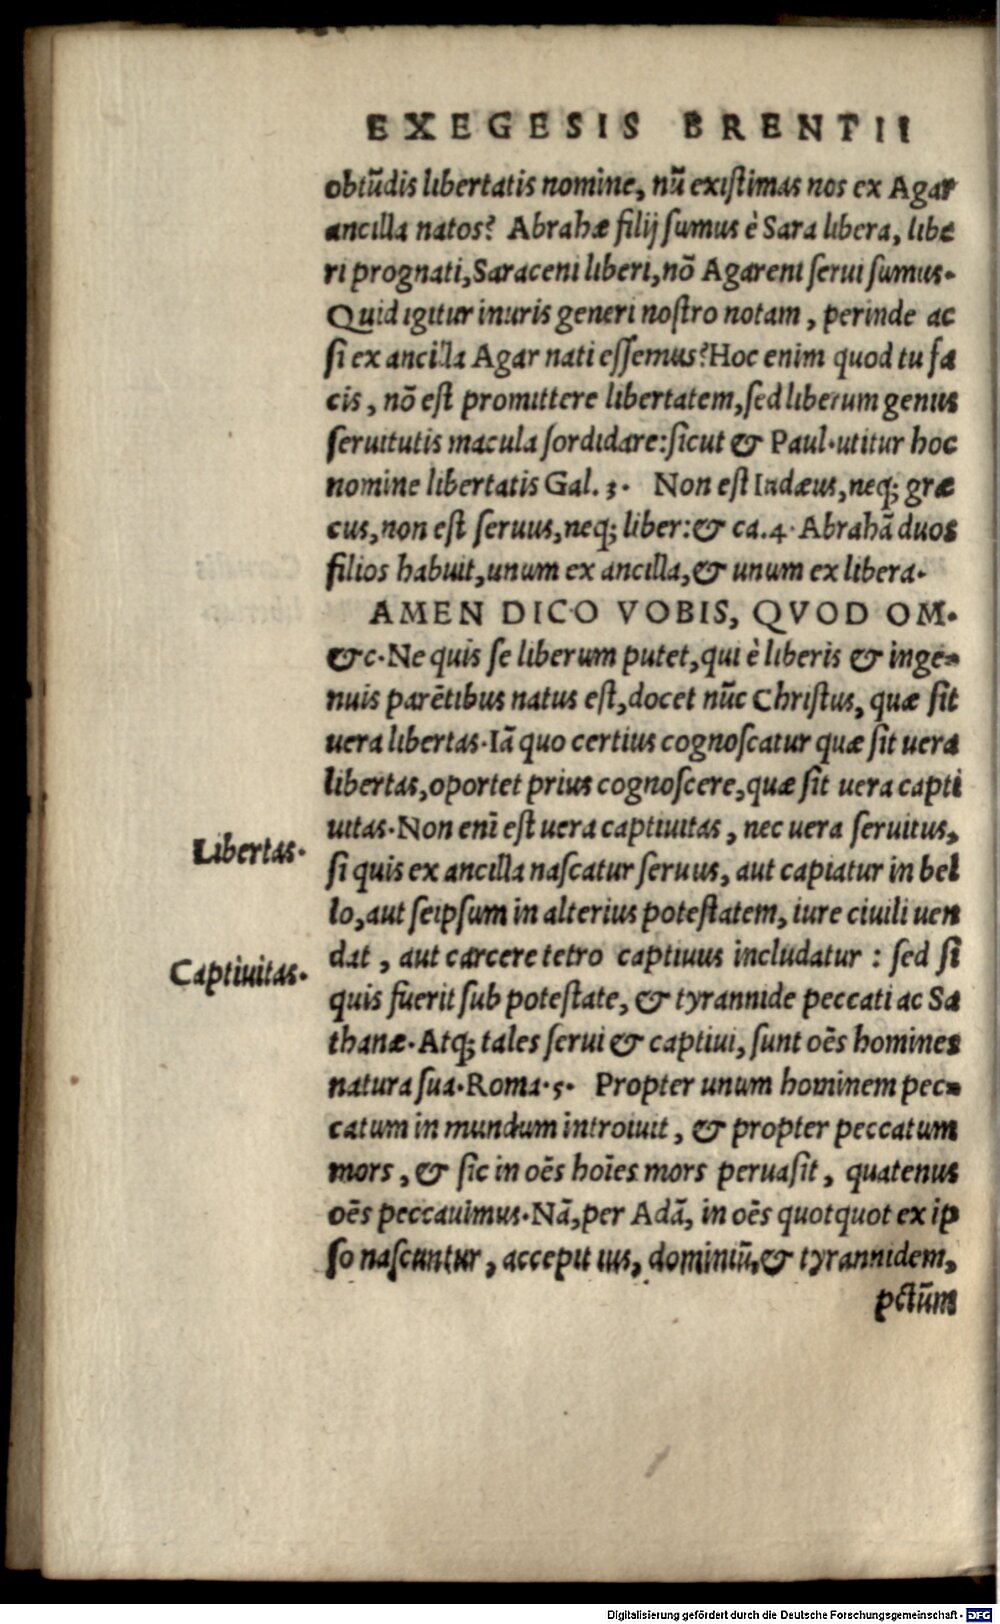 EXEGESIS BRENTII
obtũdis libertatis nomine, nũ existimas nos ex Agar
ancilla natos? Abrahæ filij sumus è Sara libera, libe
ri prognati, Saraceni liberi, nõ Agareni serui sumus.
Quid igitur inuris generi nostro notam, perinde ac
si ex ancilla Agar nati essemus? Hoc enim quod tu fa
cis, nõ est promittere libertatem, sed liberum genus
seruitutis macula sordidare: sicut & Paul. utitur hoc
nomine libertatis Gal. 3. Non est Iudæus, neq; græ
cus, non est seruus, neq; liber: & ca. 4. Abrahã duos
filios habuit, unum ex ancilla, & unum ex libera.
AMEN DICO VOBIS, QVOD OM.
&c. Ne quis se liberum putet, qui è liberis & inge-
nuis parẽtibus natus est, docet nũc Christus, quæ sit
uera libertas. Iã quo certius cognoscatur quæ sit uera
libertas, oportet prius cognoscere, quæ sit uera capti
uitas. Non enĩ est uera captiuitas, nec uera seruitus,
Libertas.
si quis ex ancilla nascatur seruus, aut capiatur in bel
lo, aut seipsum in alterius potestatem, iure ciuili uen
dat, aut carcere tetro captiuus includatur : sed si
Captiuitas.
quis fuerit sub potestate, & tyrannide peccati ac Sa
thanæ. Atq; tales serui & captiui, sunt oẽs homines
natura sua. Roma. 5. Propter unum hominem pec-
catum in mundum introiuit, & propter peccatum
mors, & sic in oẽs hoĩes mors peruasit, quatenus
oẽs peccauimus. Nã, per Adã, in oẽs quotquot ex ip
so nascuntur, accepit ius, dominiũ, & tyrannidem,
pctũm
Digitalisierung gefördert durch die Deutsche Forschungsgemeinschaft - DFG